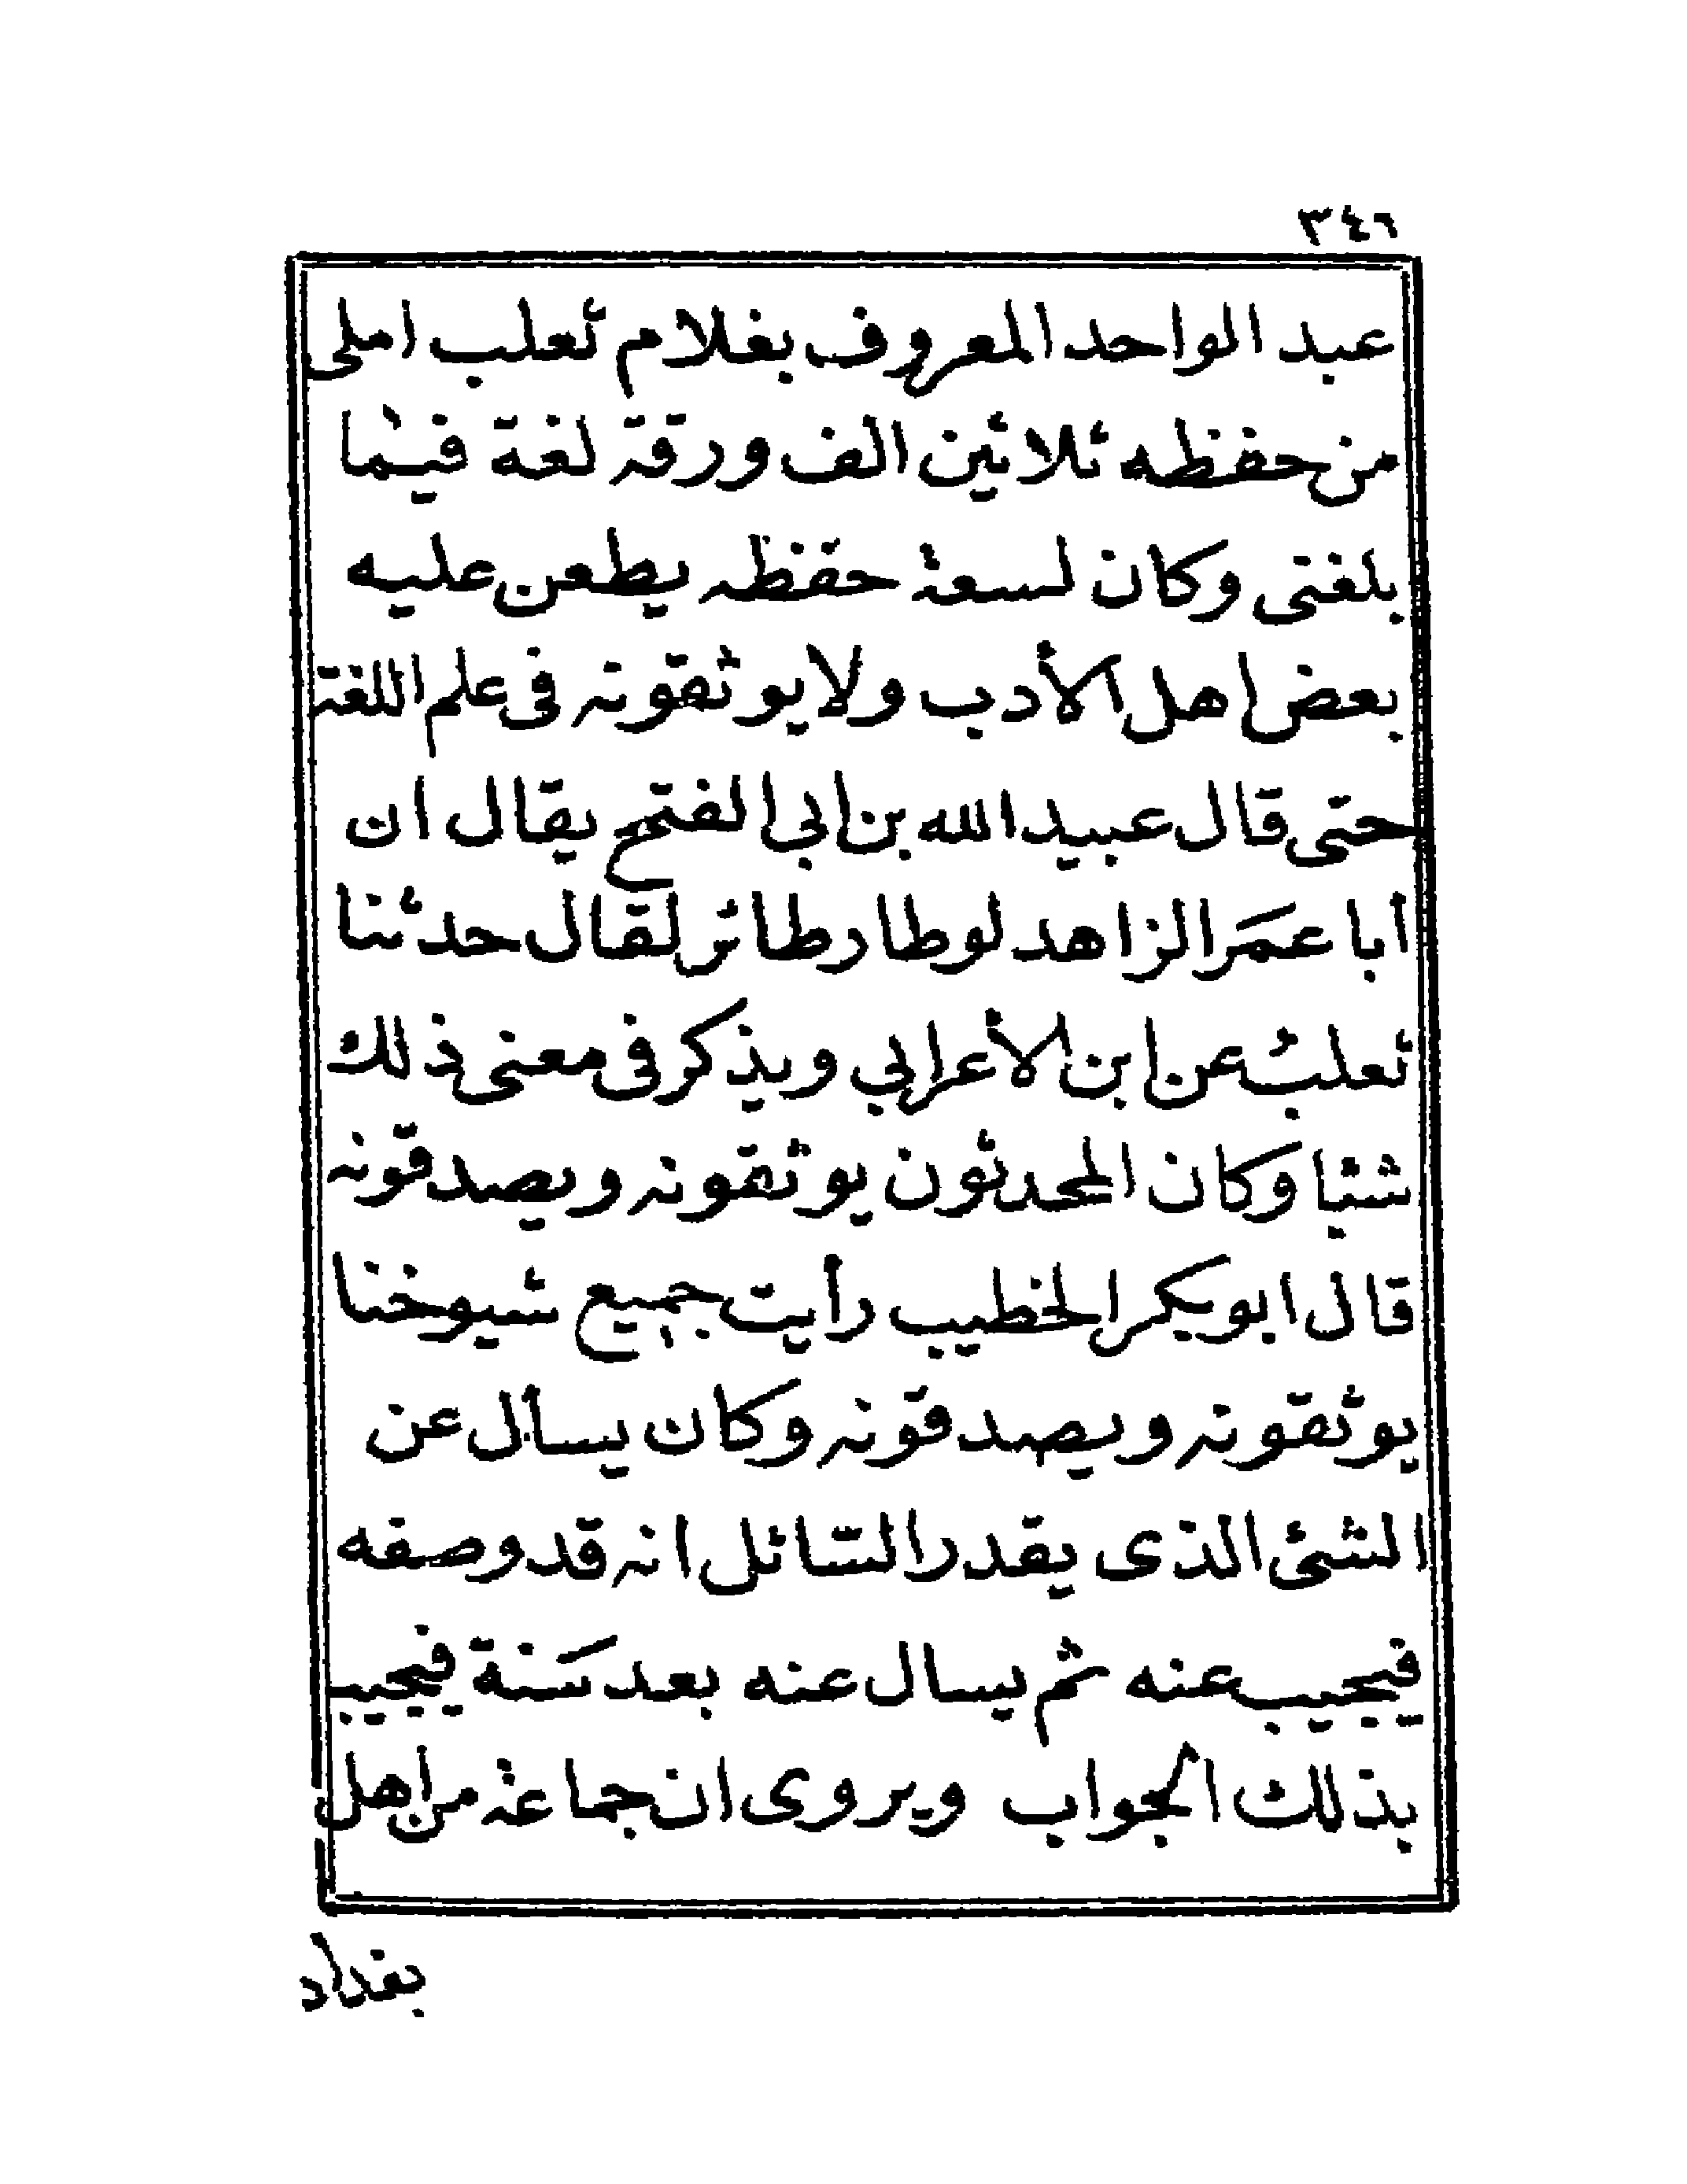 ٣٤٦
عبد الواحد المعروف بغلام ثعلب املى
من حفظه ثلاثين الف ورقة لغة فيما
بلغنى وكان لسعة حفظه يطعن عليه
بعض اهل الأدب ولا يوثقونه فى علم اللغة
حتى قال عبيد الله بن ابى الفتح يقال ان
أبا عمَر الزاهد لو طار طائر لقال حدثنا
ثعلبُ عن ابن الأعرابي ويذكر فى معنى ذلك
شئيا وكان المحدثون يوثقونه ويصدقونه
قال ابو بكر الخطيب رأيت جميع شيوخنا
يوثقونه ويصدقونه وكان يسأل عن
الشئ الذى يقدر السّائل انه قد وصفه
فيجيب عنه ثم يسال عنه بعد سَنة فيجيب
بذلك الجواب ويروى ان جماعة من اهل
بغداد